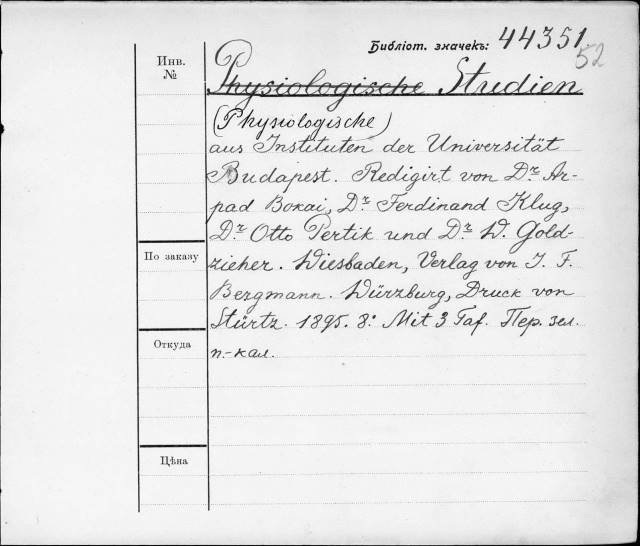 Библіот. значекъ: 44351
52
Инв.
№
Physiologische Studien
(Physiologische)
aus Instituten der Universität
Budapest. Redigirt von Dr. Ar-
pad Bokai, Dr. Ferdinand Klug,
Dr. Otto Pertik und Dr. W. Gold-
По заказу
zieher. Wiesbaden, Verlag von J. F.
Bergmann. Würzburg, Druck von
Stürtz. 1895. 8.° Mit 3 Taf. Пер. зел.
Откуда
п.-кал.
Цѣна